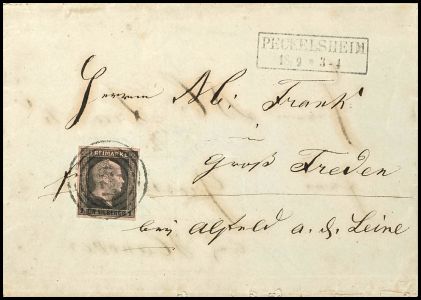 PECKELSHEIM
18 9 * 3-4
Herrn Ab: Frank
in
Groß Freden
FREIMARKE
fr
bey Alfeld a. d. Leine